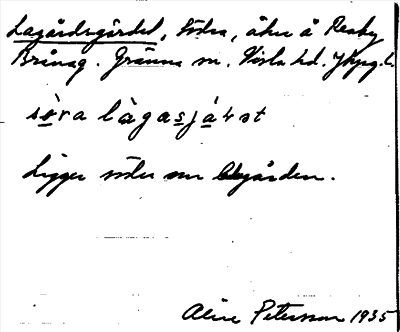 Lagårdsgärdet, Södra, åker å Reaby
Brånag. Gränna sn. Vista hd. Jkpg. l.
sö̀ra làgasjáʈst
Ligger söder om l̶a̶gården.
Aline Petersson 1935